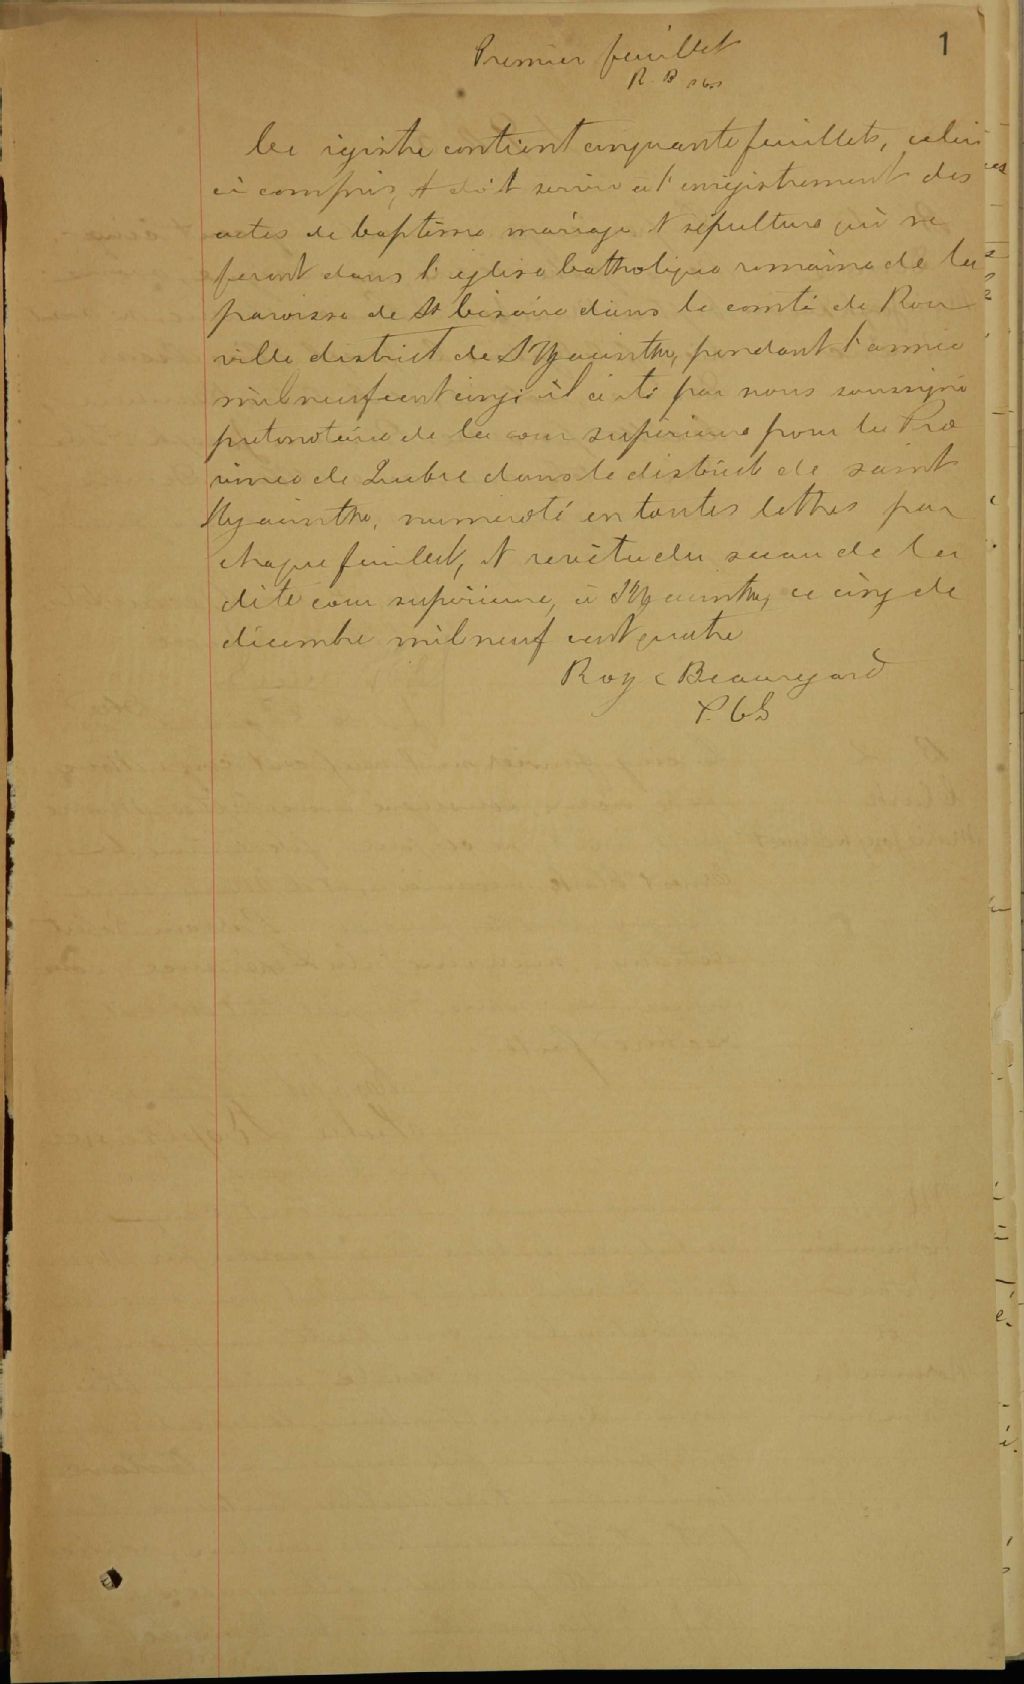 1
Premier feuillet
R. B. pcs
Ce registre contient cinquante feuillets, celui
ci compris, et doit servir à l'enregistrement des
actes de baptême mariage et sépulture qui se
feront dans l'église Catholique romaine de la
paroisse de St Césaire dans le comté de Rou
ville district de St Hyacinthe, pendant l'année
mil neuf cent cinq; il a été par nous soussigné
protonotaire de la cour supérieure pour la Pro
vince de Québec dans le district de saint
Hyacinthe, numéroté en toutes lettres par
chaque feuillet, et revêtu du sceau de la
dite cour supérieure, à St Hyacinthe, ce cinq de
décembre mil neuf cent quatre
Roy & Beauregard
P. C S